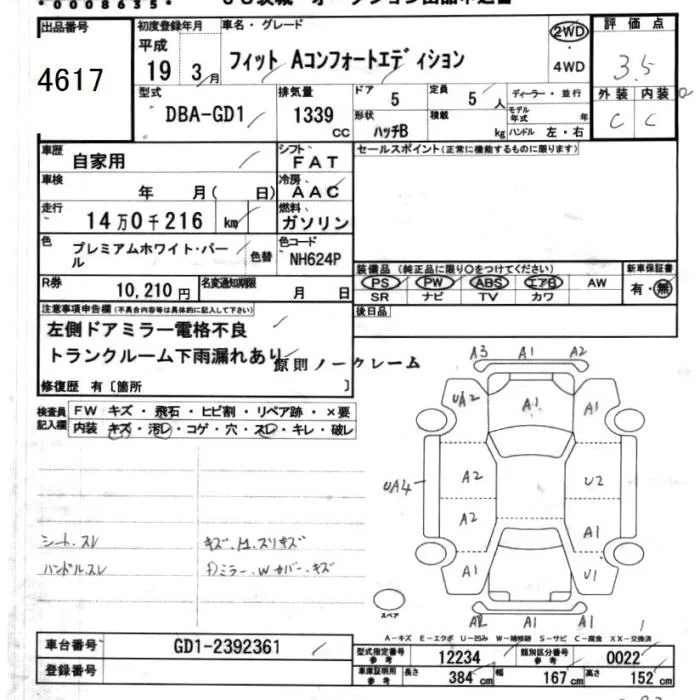 *0008635*
出品番号
4617
初度登録年月
平成
19 3月
車名・グレード
フィット Aコンフォートエディション
2WD
・
4WD
評価点
3.5
外装 内装
C C
型式
DBA-GD1
排気量
1339
CC
ドア
5
定員
5 人
形状
ハッチB
積載
kg
ディーラー・並行
モデル年式 年
ハンドル 左・右
車歴
自家用
シフト
FAT
セールスポイント(正常に機能するものに限ります)
車検
年 月( 日)
冷房
AAC
走行
14万0千216 km
燃料
ガソリン
色
プレミアムホワイト・パール
色替
色コード
NH624P
装備品 (純正品に限り○をつけてください)
新車保証書
PS PW ABS エアB AW
有・無
SR ナビ TV カワ
R券
10,210円
名変通知期限
月 日
後日品
注意事項申告欄(不具合内容等は具体的に記入して下さい)
左側ドアミラー電格不良
トランクルーム下雨漏れあり
原則ノークレーム
修復歴 有〔箇所 〕
検査員記入欄
FW キズ・飛石・ヒビ割・リペア跡・×要
内装 キズ・汚レ・コゲ・穴・スレ・キレ・破レ
A3 A1 A2
UA2 A1 A1
A2 U2
UA4
A2 A1
A1 U1
A2 A1 A1
シート.スレ
ハンドル.スレ
スペア
A-キズ E-エクボ U-凹み W-補修跡 S-サビ C-腐食 XX-交換済
車台番号
GD1-2392361
登録番号
型式指定番号参考
12234
類別区分番号参考
0022
車庫証明用参考
長さ 384 cm
幅 167 cm
高さ 152 cm